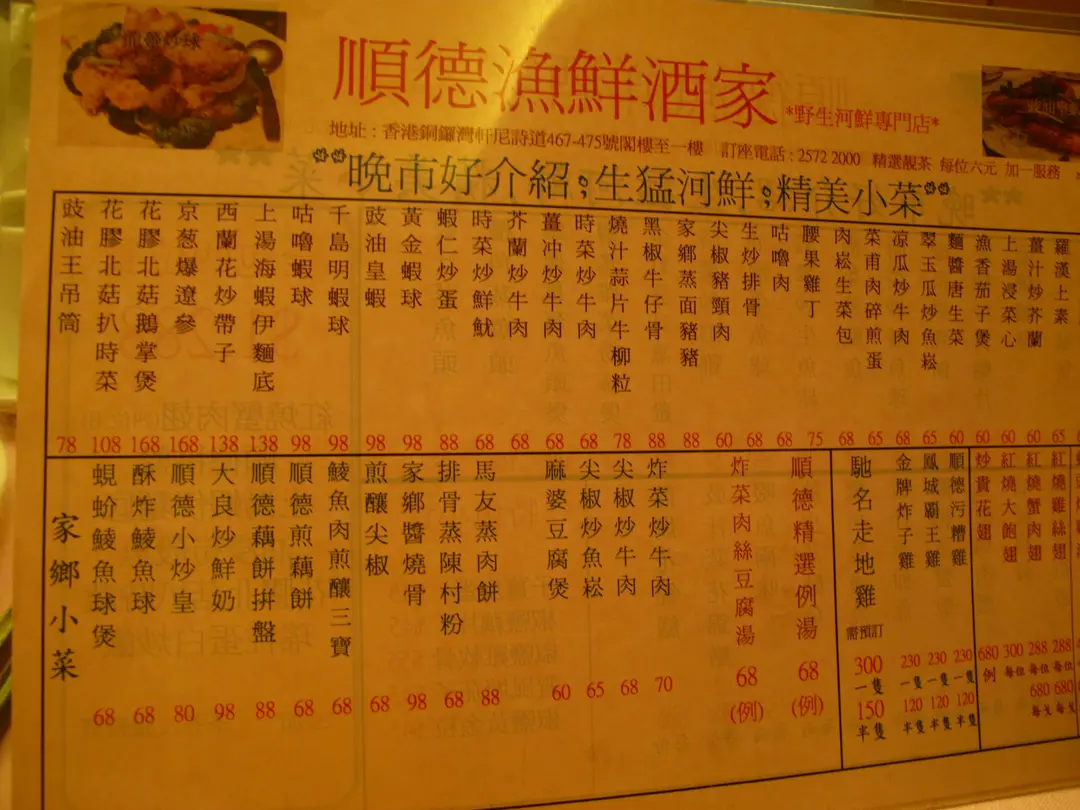 順德漁鮮酒家
*野生河鮮專門店*
地址 : 香港銅鑼灣軒尼詩道467-475號閣樓至一樓 訂座電話 : 2572 2000 精選靚茶 每位六元 加一服務
晚市好介紹;生猛河鮮;精美小菜
豉油王吊筒 78
花膠北菇扒時菜 108
花膠北菇鵝掌煲 168
京葱爆遼參 168
西蘭花炒帶子 138
上湯海蝦伊麵底 138
咕嚕蝦球 98
千島明蝦球 98
豉油皇蝦 98
黃金蝦球 98
蝦仁炒蛋 88
時菜炒鮮魷 68
芥蘭炒牛肉 68
薑冲炒牛肉 68
時菜炒牛肉 68
燒汁蒜片牛柳粒 78
黑椒牛仔骨 88
家鄉蒸面豬豬 88
尖椒豬頸肉 60
生炒排骨 68
咕嚕肉 68
腰果雞丁 75
肉崧生菜包 68
菜甫肉碎煎蛋 65
凉瓜炒牛肉 68
翠玉瓜炒魚崧 65
麵醬唐生菜 60
漁香茄子煲 60
上湯浸菜心 60
薑汁炒芥蘭 60
羅漢上素 65
家鄉小菜
蜆蚧鯪魚球煲 68
酥炸鯪魚球 68
順德小炒皇 80
大良炒鮮奶 98
順德藕餅拼盤 88
順德煎藕餅 68
鯪魚肉煎釀三寶 68
煎釀尖椒 68
家鄉醬燒骨 98
排骨蒸陳村粉 68
馬友蒸肉餅 88
麻婆豆腐煲 60
尖椒炒魚崧 65
尖椒炒牛肉 68
炸菜炒牛肉 70
炸菜肉絲豆腐湯 68 (例)
順德精選例湯 68 (例)
馳名走地雞 需預訂 300一隻 150半隻
金牌炸子雞 230一隻 120半隻
鳳城霸王雞 230一隻 120半隻
順德污糟雞 230一隻 120半隻
炒貴花翅 680例
紅燒大鮑翅 300每位
紅燒蟹肉翅 288每位 680每戈
紅燒雞絲翅 288每位 680每戈